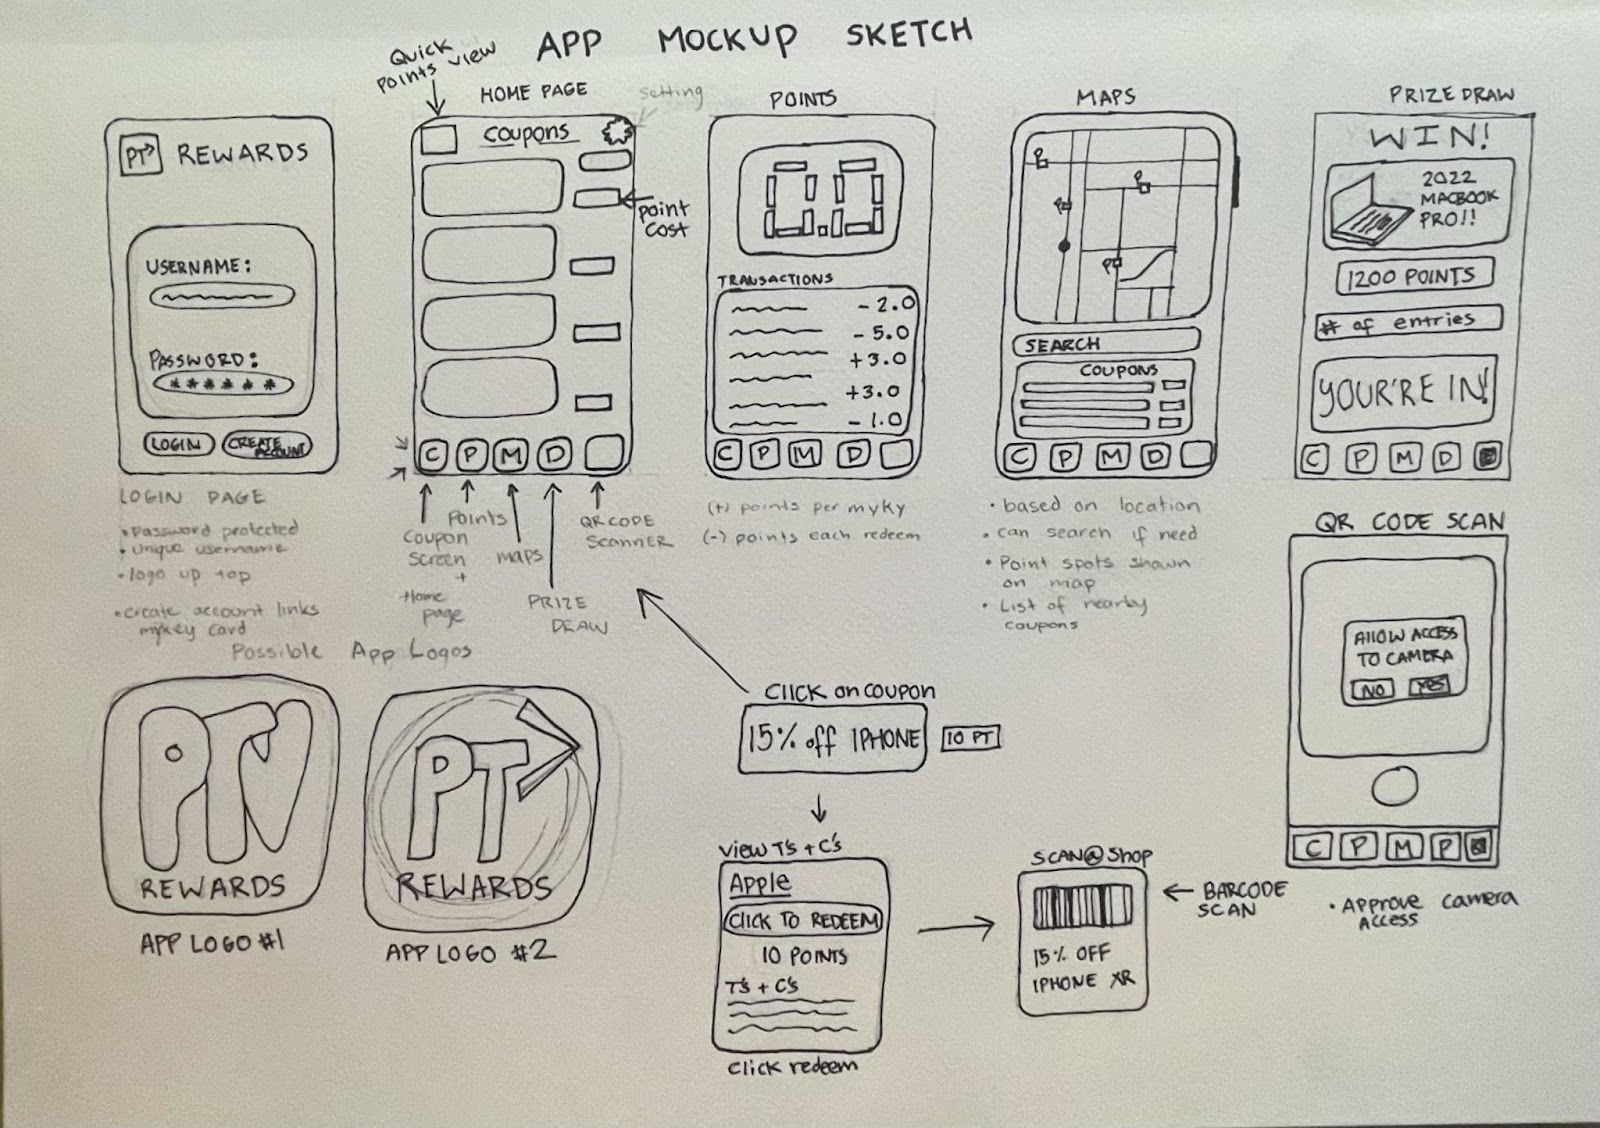 APP MOCKUP SKETCH
Quick
points view
HOME PAGE
setting
POINTS
MAPS
PRIZE DRAW
PT
REWARDS
USERNAME:
PASSWORD:
******
LOGIN
CREATE
ACCOUNT
LOGIN PAGE
• Password protected
• Unique username
• logo up top
• create account links
mykey card
Coupons
point
cost
C P M D
Coupon
screen
+
Home
page
Points
maps
PRIZE
DRAW
QR CODE
SCANNER
0.0
TRANSACTIONS
- 2.0
- 5.0
+3.0
+3.0
- 1.0
C P M D
(+) points per myky
(-) points each redeem
P
P
P
P
SEARCH
COUPONS
C P M D
• based on location
• can search if need
• Point spots shown
on map
• List of nearby
coupons
WIN!
2022
MACBOOK
PRO!!
1200 POINTS
# of entries
YOUR'RE IN!
C P M D
QR CODE SCAN
Allow ACCESS
TO CAMERA
NO YES
C P M P
• Approve camera
Access
Possible App Logos
PTV
REWARDS
APP LOGO #1
PT
REWARDS
APP LOGO #2
Click on coupon
15% off IPHONE
10 PT
View T's + C's
Apple
CLICK TO REDEEM
10 POINTS
T's + C's
Click redeem
SCAN@Shop
15% OFF
IPHONE XR
BARCODE
SCAN